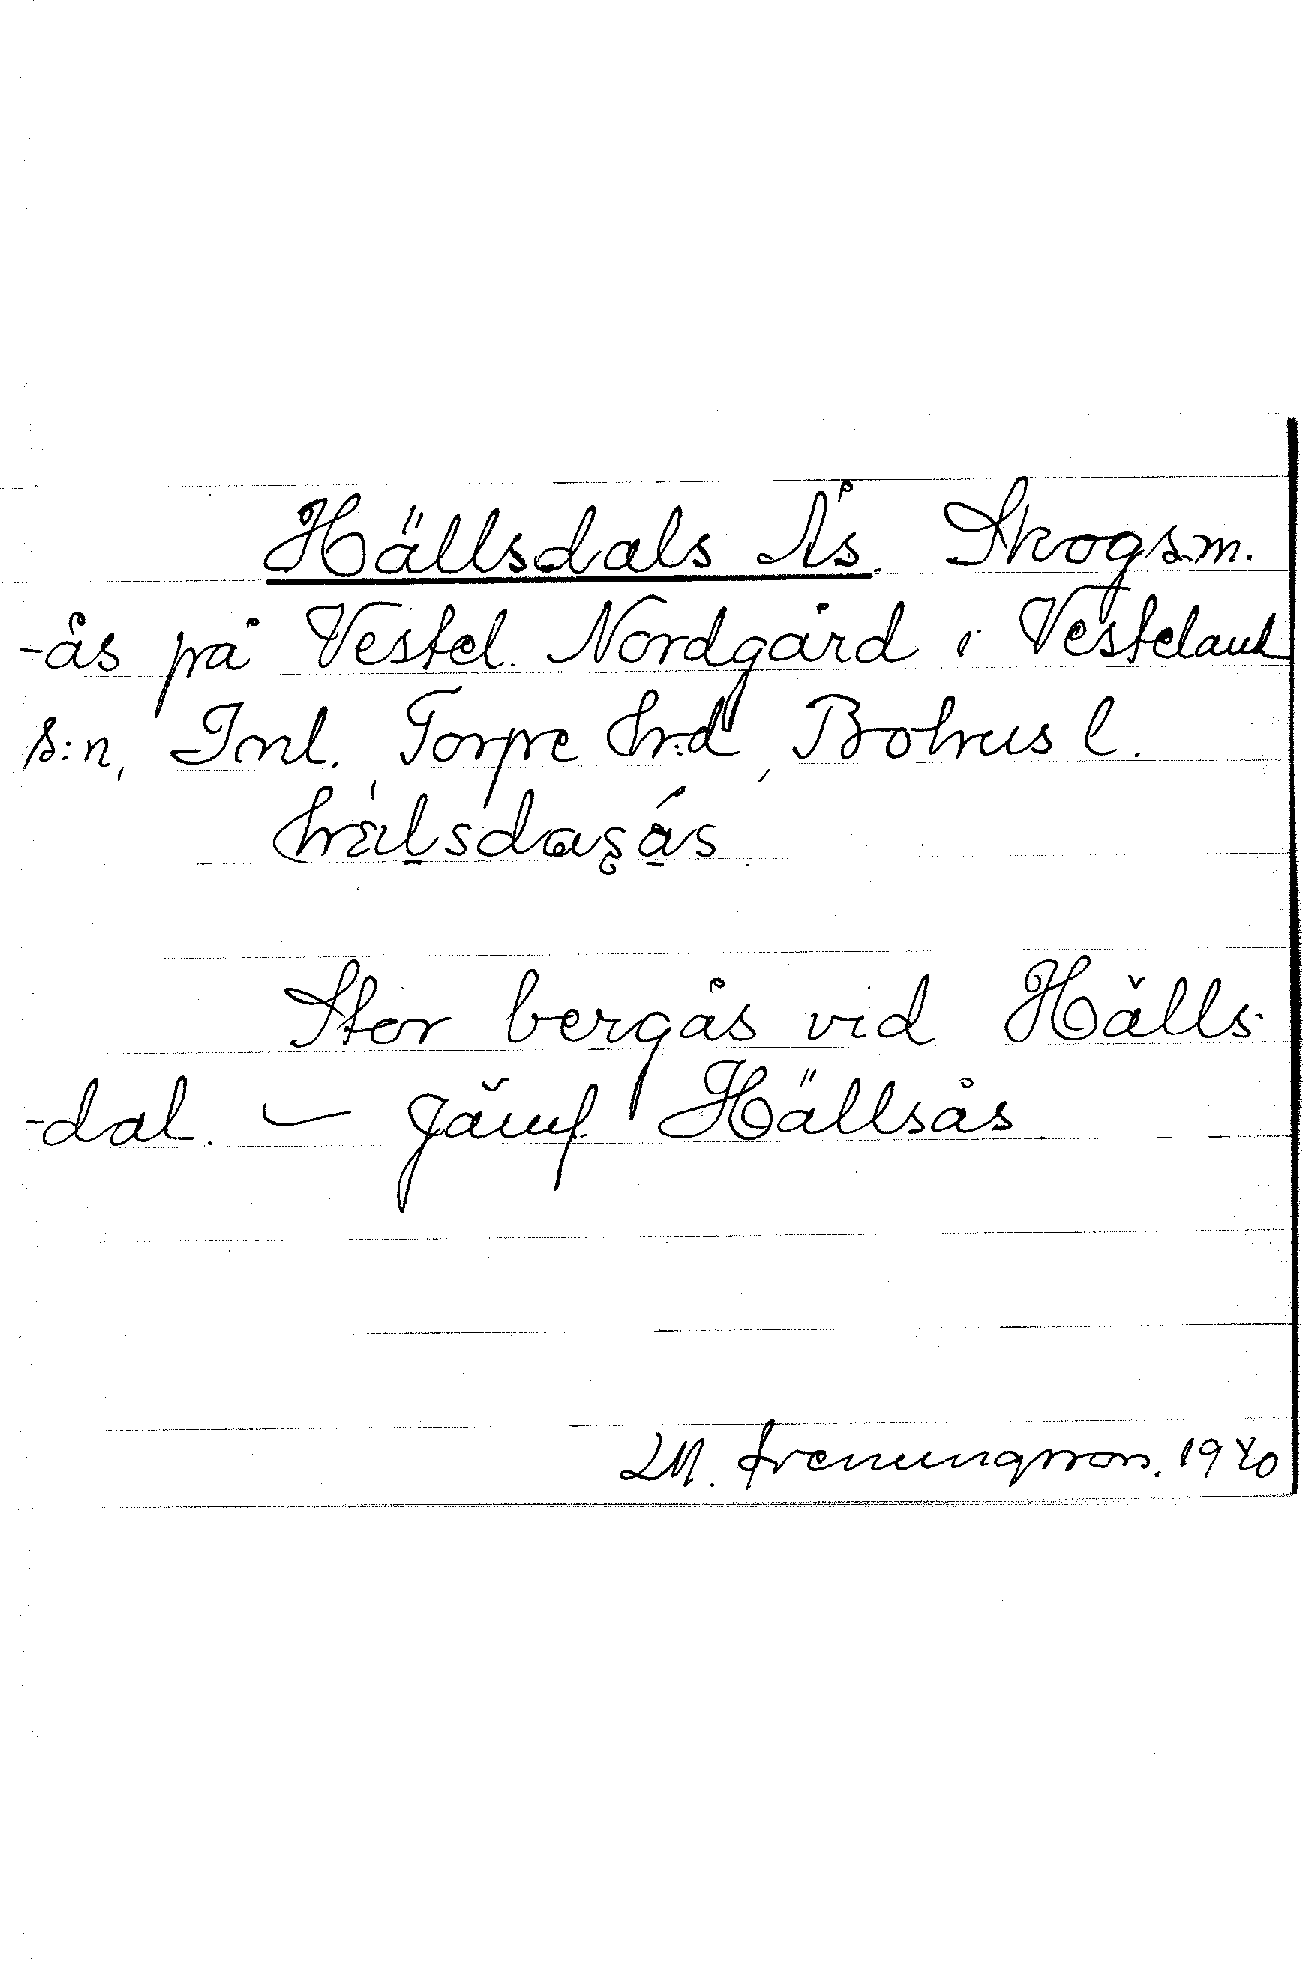 Hällsdals Ås. Skogsm.
-ås på Vestel. Nordgård i Vesteland
s:n, Inl. Torpe hrd, Bohus l.
Stor bergås vid Hälls-
-dal. — Jämf. Hällsås
1940